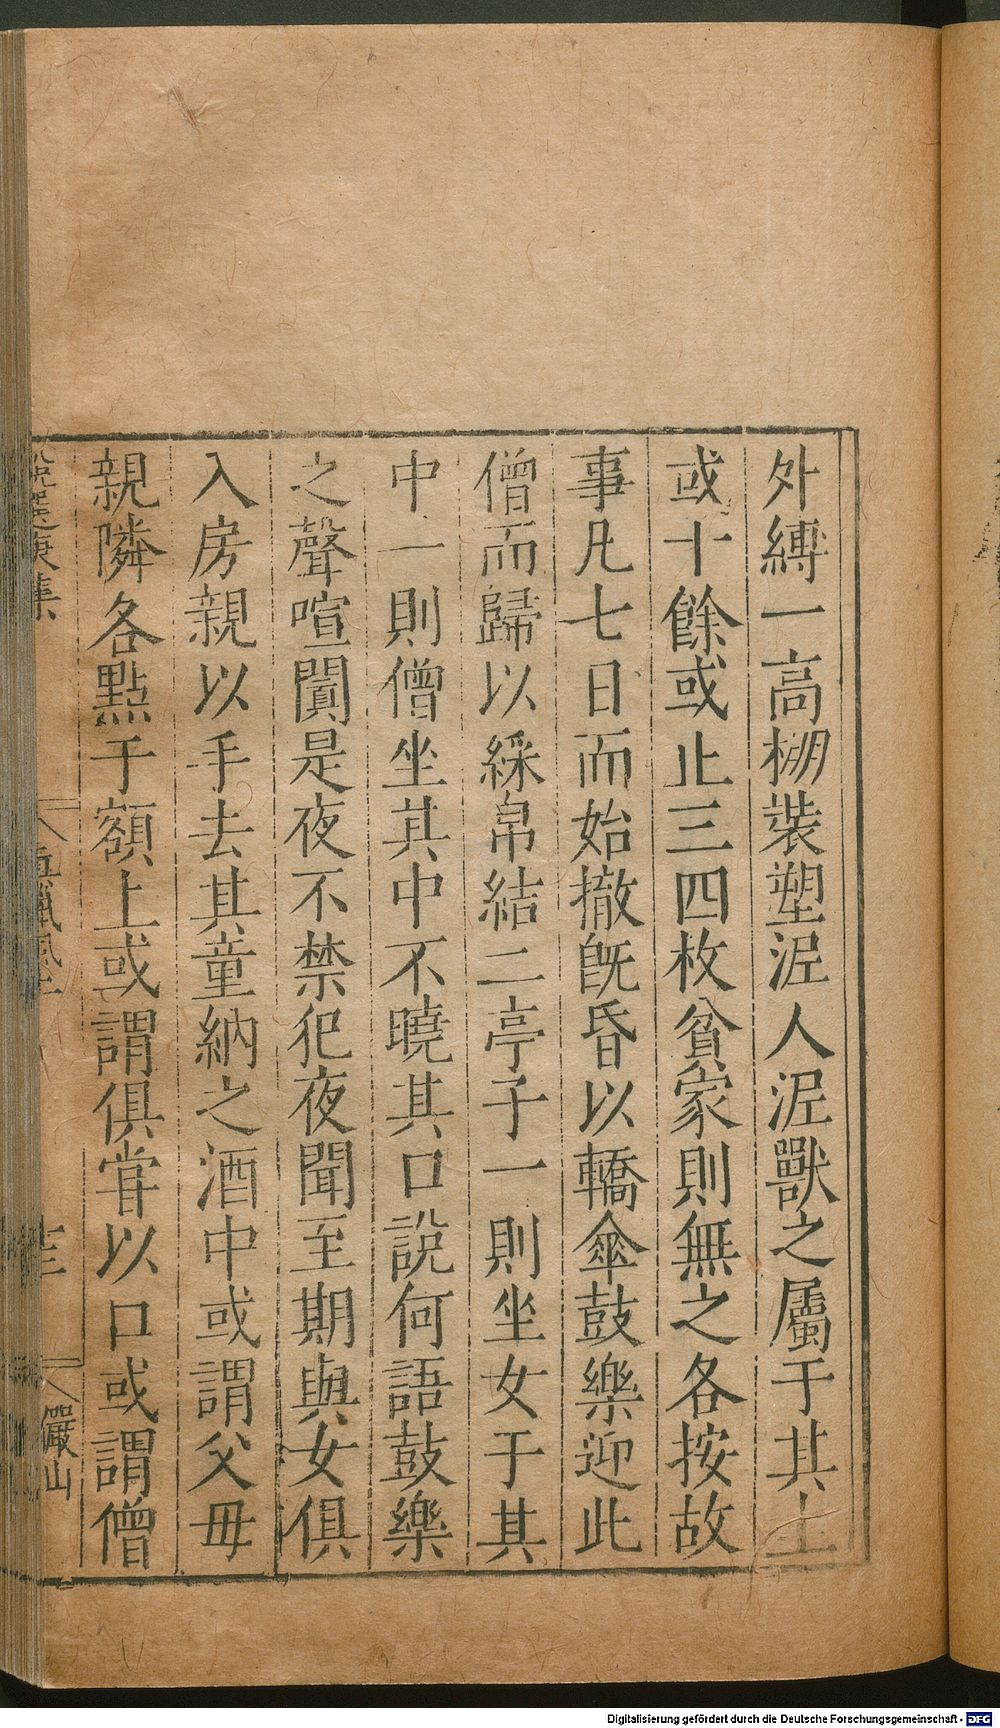 外縛一高棚裝塑泥人泥獸之屬于其上
或十餘或止三四枚貧家則無之各按故
事凡七日而始撤旣昏以轎傘鼓樂迎此
僧而歸以綵帛結二亭子一則坐女于其
中一則僧坐其中不曉其口說何語鼓樂
之聲喧闐是夜不禁犯夜聞至期與女俱
入房親以手去其童納之酒中或謂父母
親隣各點于額上或謂俱甞以口或謂僧
儼山
Digitalisierung gefördert durch die Deutsche Forschungsgemeinschaft - DFG